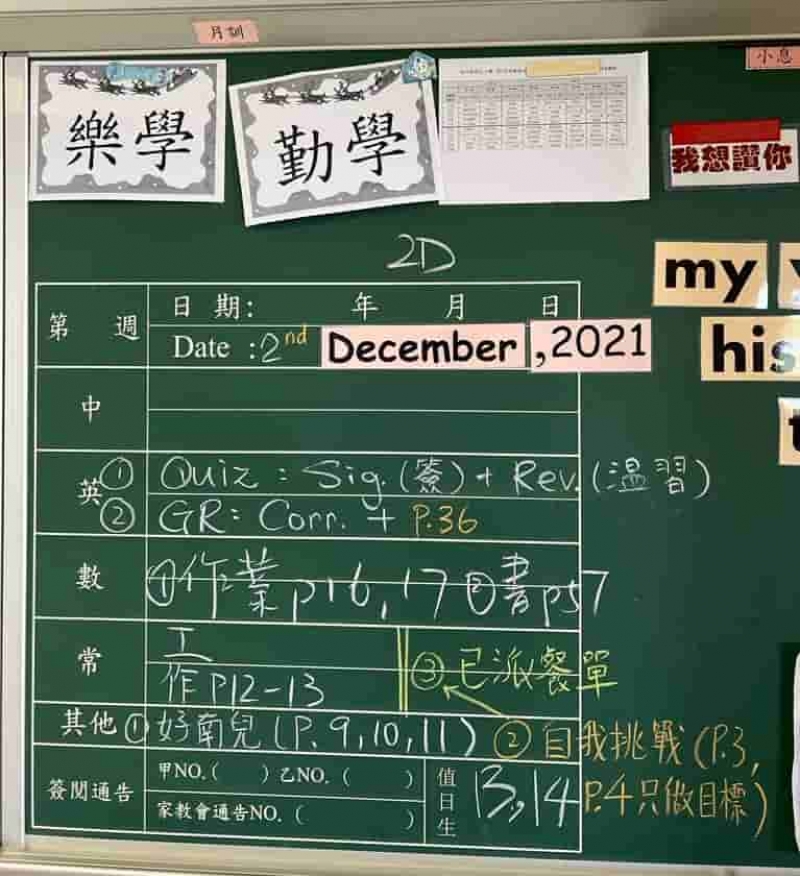 月訓
小息
樂學
勤學
我想讚你
2D
my
his
第 週
日期: 年 月 日
Date : 2nd December ,2021
中
英
① Quiz : Sig. (簽) + Rev. (溫習)
② GR: Corr. + P.36
數
①作業 p16, 17 ②書p57
常
工
作 P12-13
③已派餐單
其他 ①好南兒 (P. 9, 10, 11) ② 自我挑戰 (P.3,
P.4只做目標)
簽閱通告
甲NO. ( ) 乙NO. ( )
家教會通告NO. ( )
值日生
13, 14